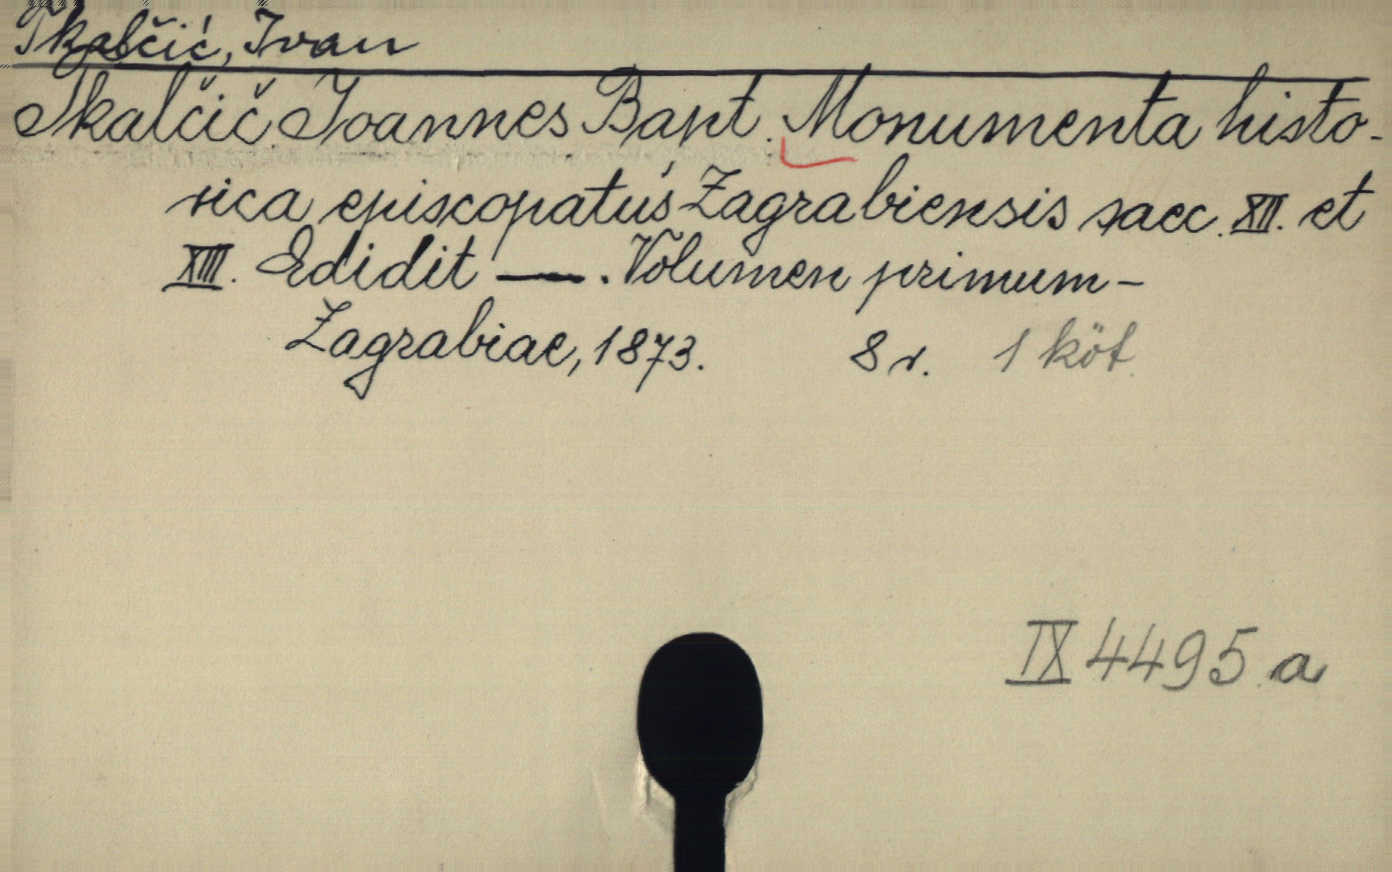 Tkalčić, Ivan
Tkalčič Joannes Bapt. Monumenta histo-
rica episcopatus Zagrabiensis saec. XII. et
XIII. Edidit —. Volumen primum –
Zagrabiae, 1873. 8 r. 1 köt.
IX 4495 a